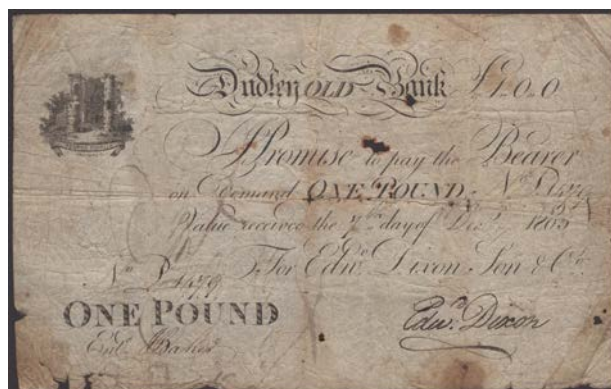 Dudley OLD Bank £1.0.0
I Promise to pay the Bearer
on Demand ONE POUND
Value received the 7th day of Decr 1803
For Edwd. Dixon Son & Co.
ONE POUND
Edwd. Dixon